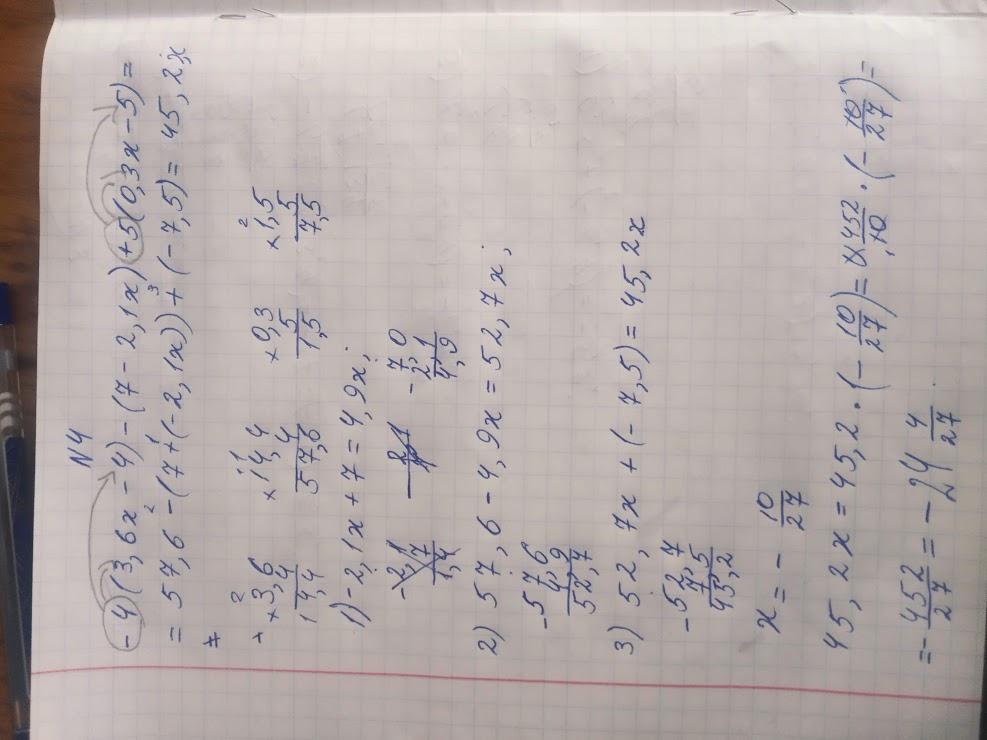 N4
-4(3,6x-4)-(7-2,1x)+5(0,3x-5)=
=57,6-(7+(-2,1x))+(-7,5)=45,2x;
×3,6 ×14,4 ×0,3 ×1,5
4 4 5 5
14,4 57,6 1,5 7,5
1) -2,1x+7=4,9x;
-2,1 -7,0
7 2,1
1,4 4,9
2) 57,6-4,9x=52,7x;
-57,6
4,9
52,7
3) 52,7x+(-7,5)=45,2x
-52,7
7,5
45,2
x=-10/27
45,2x=45,2·(-10/27)=452/10·(-10/27)=
=-452/27=-24 4/27